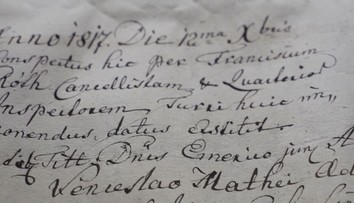 Anno 1817. Die 12ma Xbris
Conspectus hic per Franciscum
Róth Cancellistam & Quartirior
Inspectorem Turri huic im,,
ponendus, datus extitit.
Titt. Dnis Emerico jun
Venceslao Mathei Ad